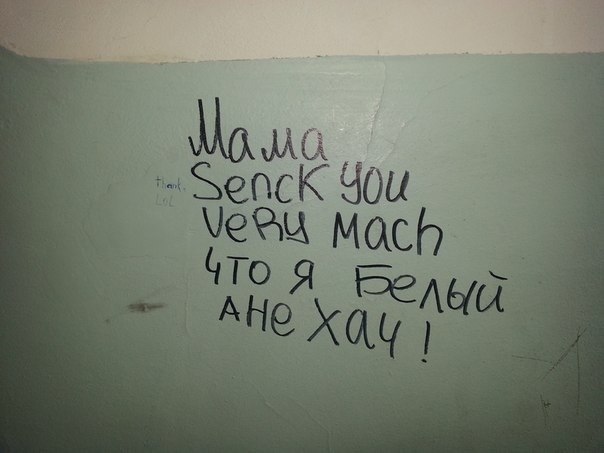 Мама
thank
Senck you
LOL
VeRy Mach
что я Белый
Ане ХАЧ!